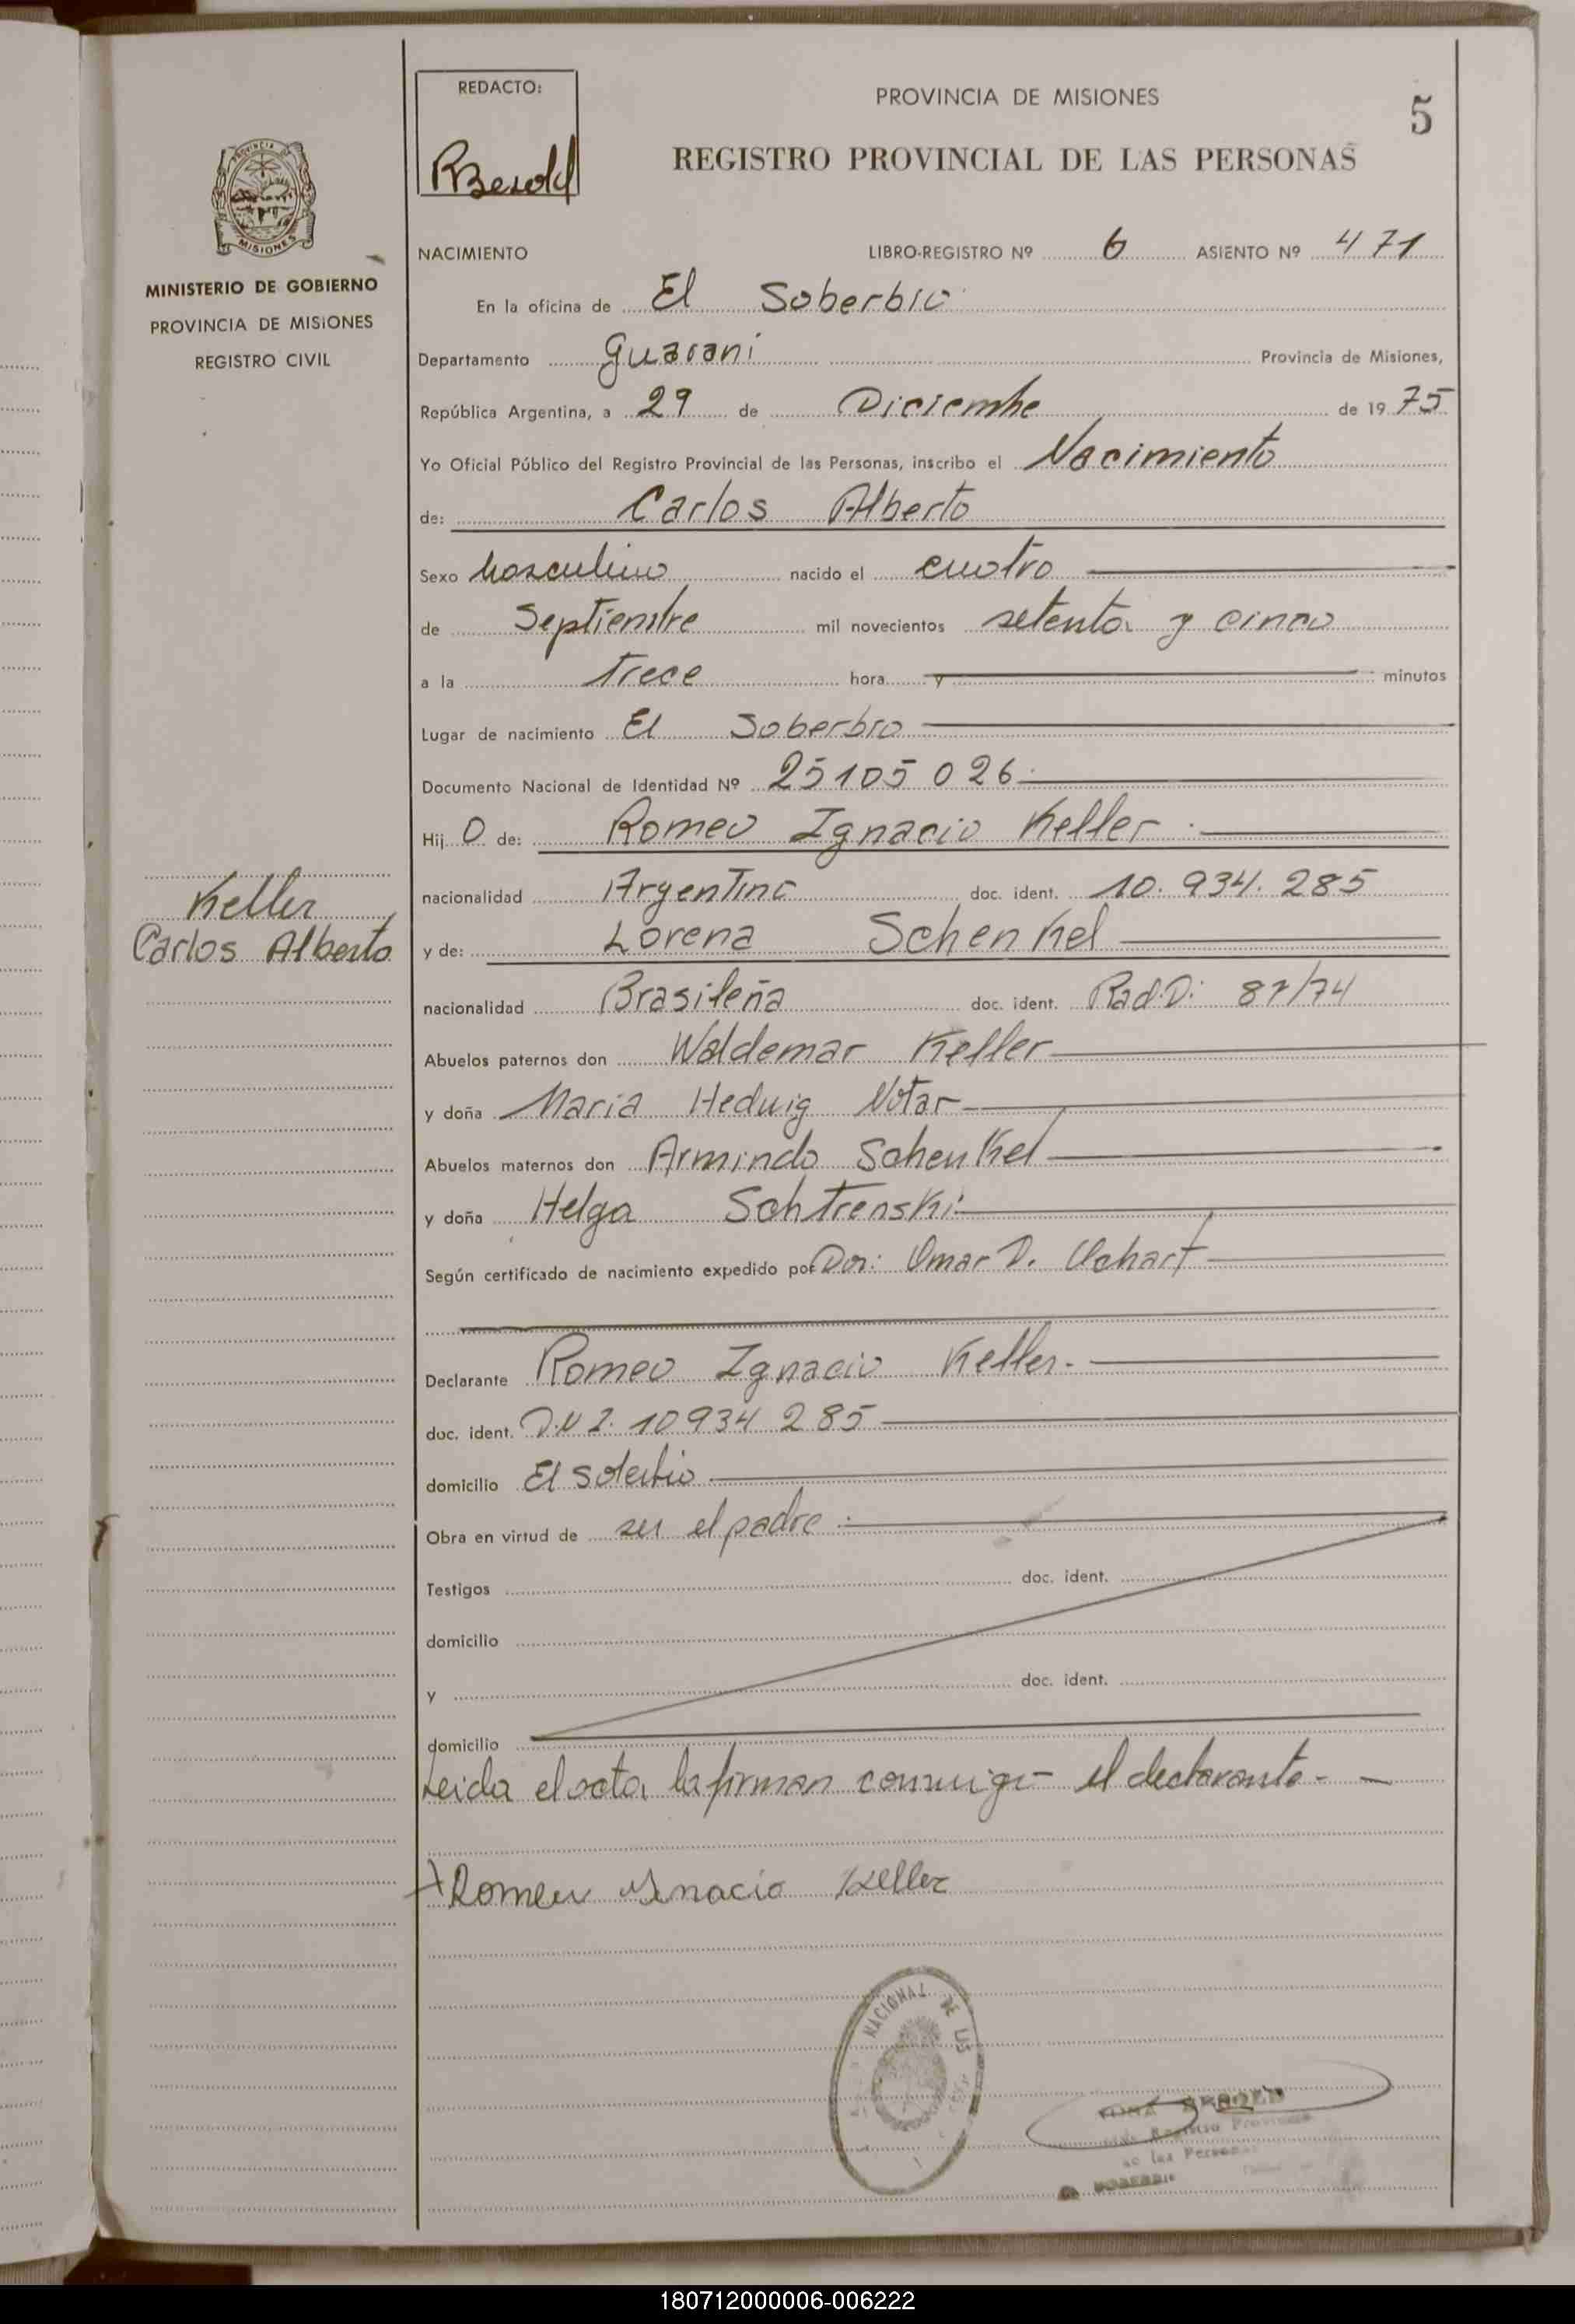 REDACTO:
PROVINCIA DE MISIONES
5
REGISTRO PROVINCIAL DE LAS PERSONAS
PROVINCIA DE
MISIONES
MINISTERIO DE GOBIERNO
PROVINCIA DE MISIONES
REGISTRO CIVIL
NACIMIENTO LIBRO-REGISTRO Nº 6 ASIENTO Nº 471
En la oficina de El Soberbio
Departamento Guarani Provincia de Misiones,
República Argentina, a 29 de Diciembre de 19 75
Yo Oficial Público del Registro Provincial de las Personas, inscribo el Nacimiento
de: Carlos Alberto
Sexo Masculino nacido el cuatro
de Septiembre mil novecientos setenta y cinco
a la trece hora y minutos
Lugar de nacimiento El Soberbio
Documento Nacional de Identidad Nº 25105026
Hij o de: Romeo Ignacio Keller
nacionalidad Argentina doc. ident. 10.934.285
Keller
Carlos Alberto
y de: Lorena Schenkel
nacionalidad Brasileña doc. ident. Rad.D: 87/74
Abuelos paternos don Waldemar Keller
y doña Maria Hedwig Notar
Abuelos maternos don Armindo Schenkel
y doña Helga Schtrenski
Según certificado de nacimiento expedido por Omar D.
Declarante Romeo Ignacio Keller.
doc. ident. D.N.I. 10934285
domicilio El Soberbio
Obra en virtud de ser el padre
Testigos doc. ident.
domicilio
y doc. ident.
domicilio
Leida el acta la firman conmigo el declarante
Romeu Ignacio Keller
NACIONAL DE LAS
Registro Provincial
de las Personas
180712000006-006222